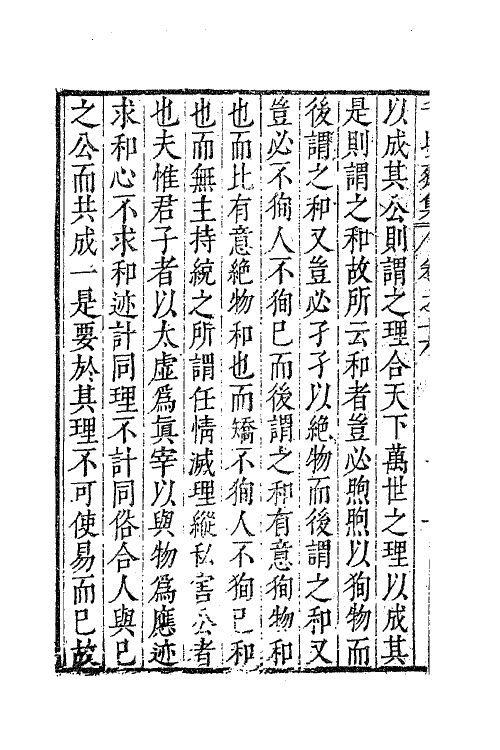 以成其公則謂之理合天下萬世之理以成其
是則謂之和故所云和者豈必煦煦以狥物而
後謂之和又豈必孑孑以絶物而後謂之和又
豈必不狥人不狥巳而後謂之和有意狥物和
也而比有意絶物和也而矯不狥人不狥巳和
也而無主持統之所謂任情滅理縱私害公者
也夫惟君子者以太虛爲眞宰以與物爲應迹
求和心不求和迹計同理不計同俗合人與巳
之公而共成一是要於其理不可使易而巳故